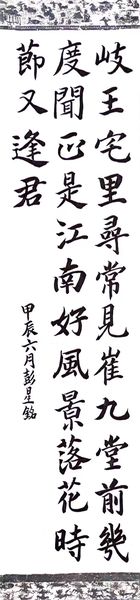 岐王宅里尋常見崔九堂前幾
度聞正是江南好風景落花時
節又逢君
甲辰六月彭星銘